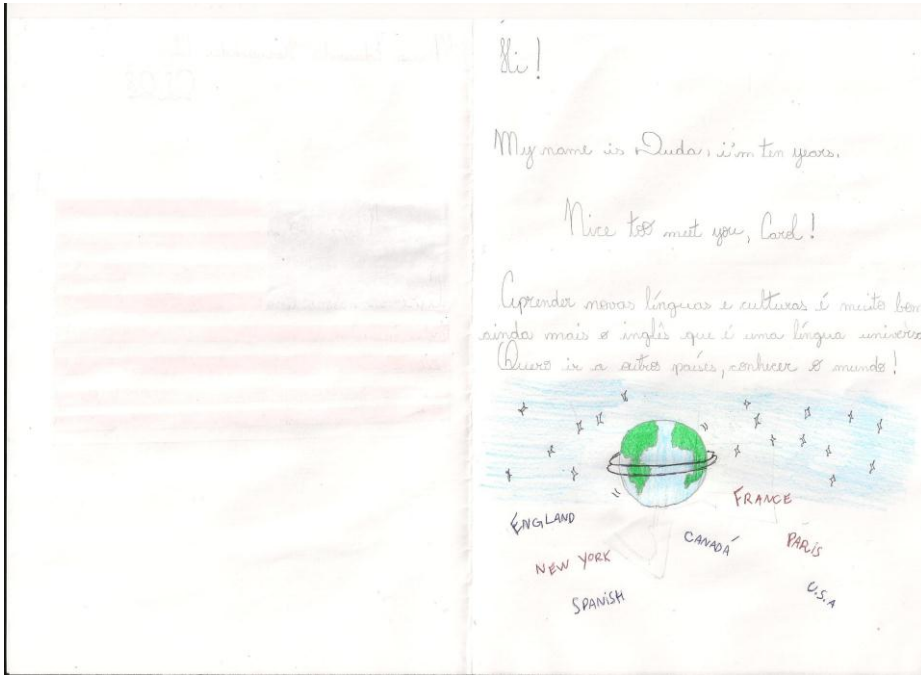 Hi!
My name is Duda, i'm ten years.
Nice too meet you, Carol!
Aprender novas línguas e culturas é muito bom
ainda mais o inglês que é uma língua univers
Quero ir a outros países, conhecer o mundo!
FRANCE
ENGLAND
CANADÁ
PARIS
NEW YORK
SPANISH
U.S.A